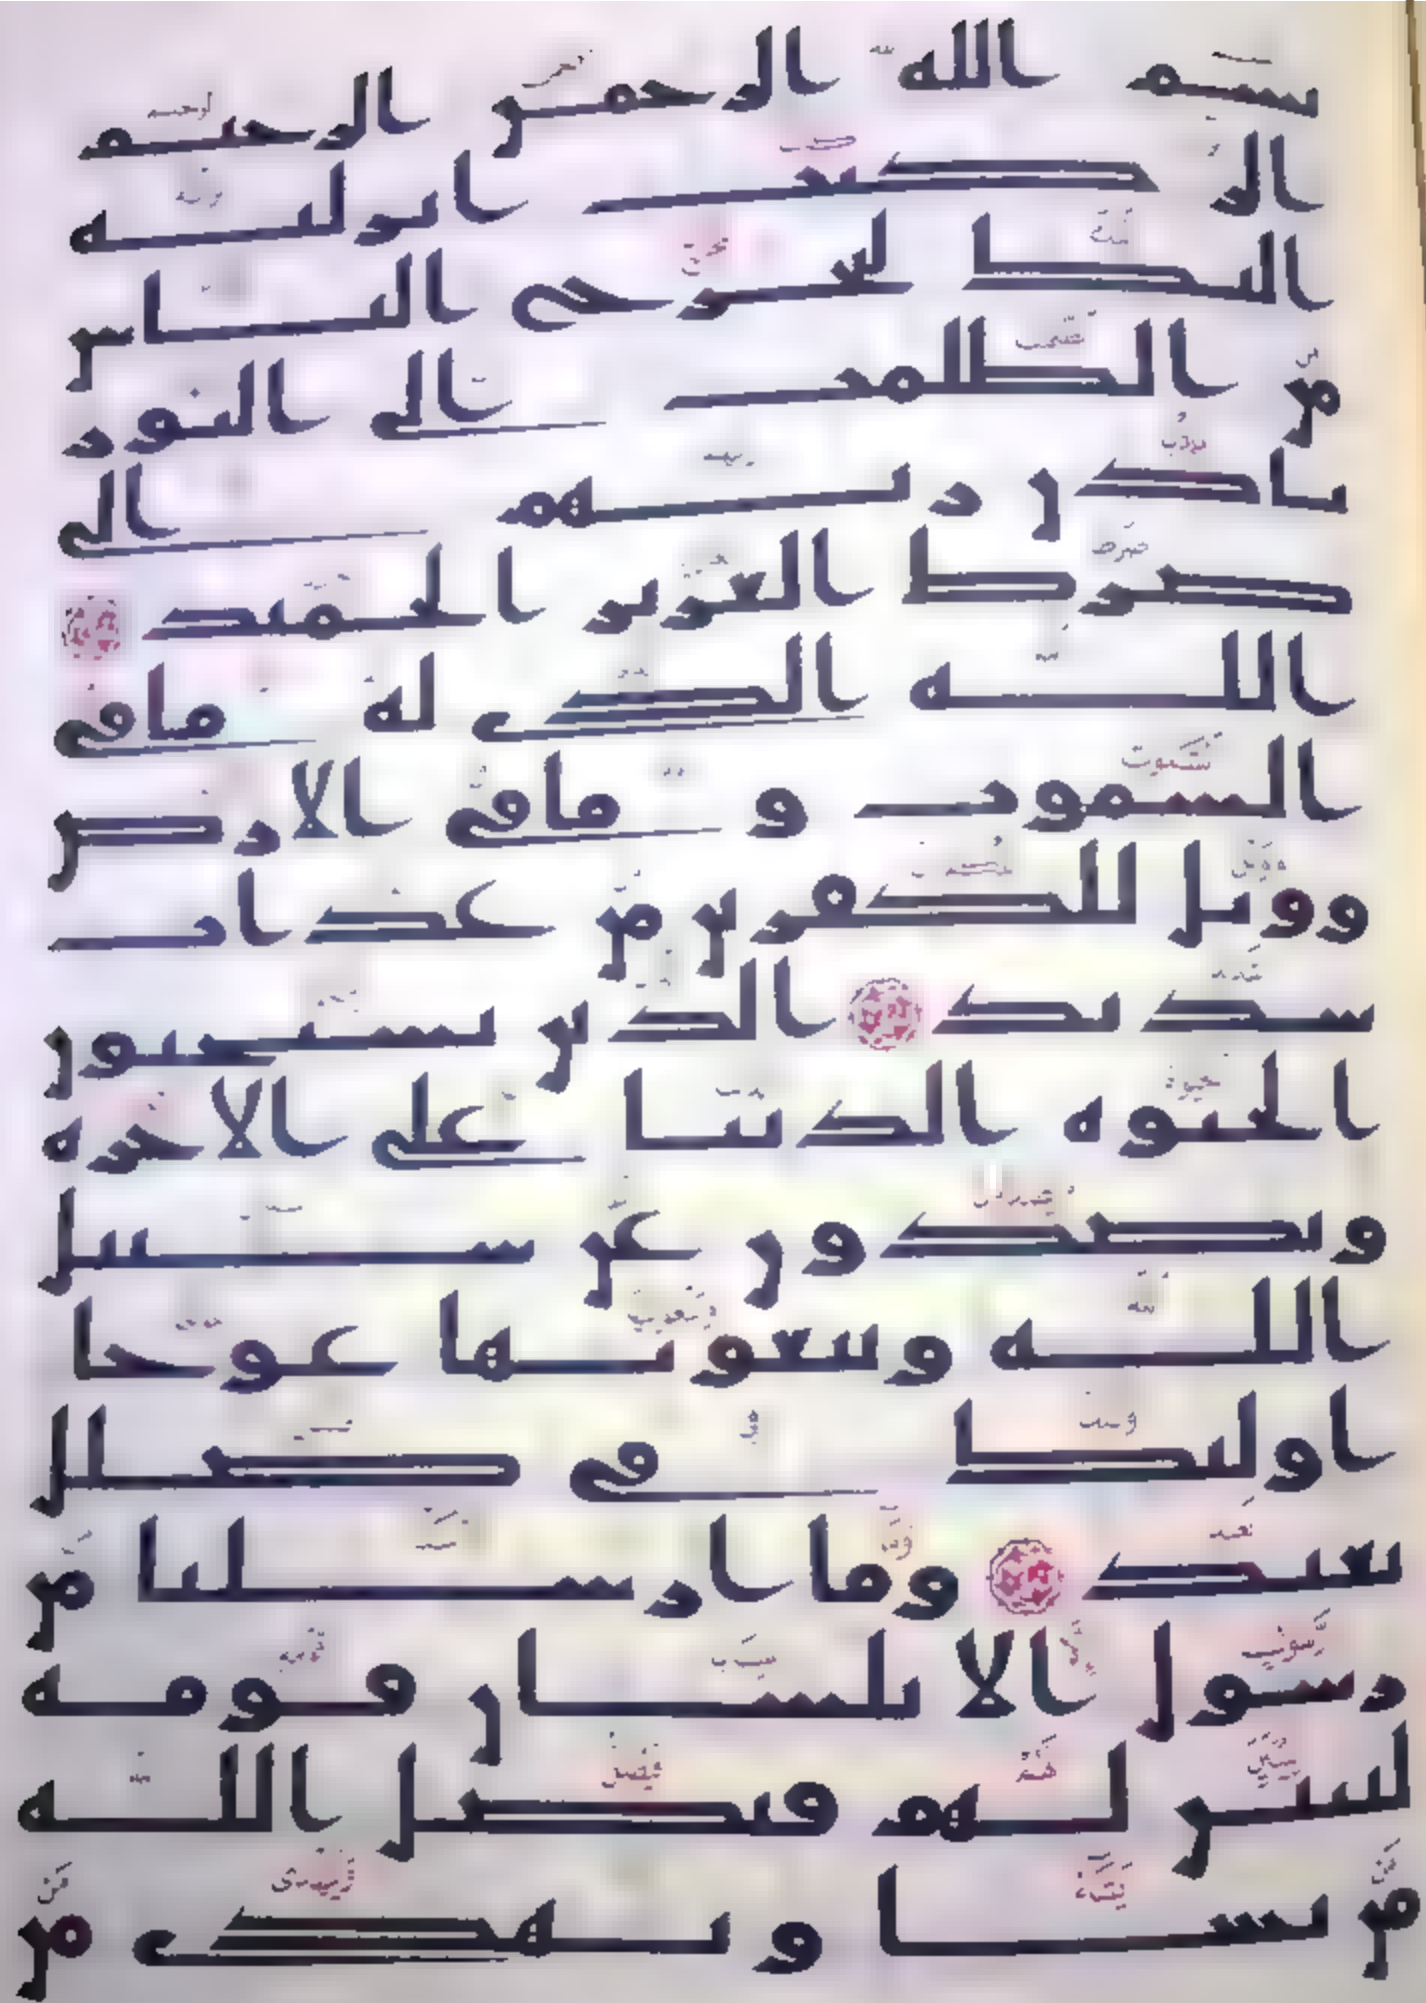 بسم الله الرحمن الرحيم
الر كتب انزلنه
اليك لتخرج الناس
من الظلمت الى النور
باذن ربهم الى
صرط العزيز الحميد
الله الذى له ما فى
السموت و ما فى الارض
وويل للكفرين من عذاب
شديد الذين يستحبون
الحيوه الدنيا على الاخره
ويصدون عن سبيل
الله ويبغونها عوجا
اوليك فى ضلل
بعيد وما ارسلنا من
رسول الا بلسان قومه
ليبين لهم فيضل الله
من يشا ويهدى من